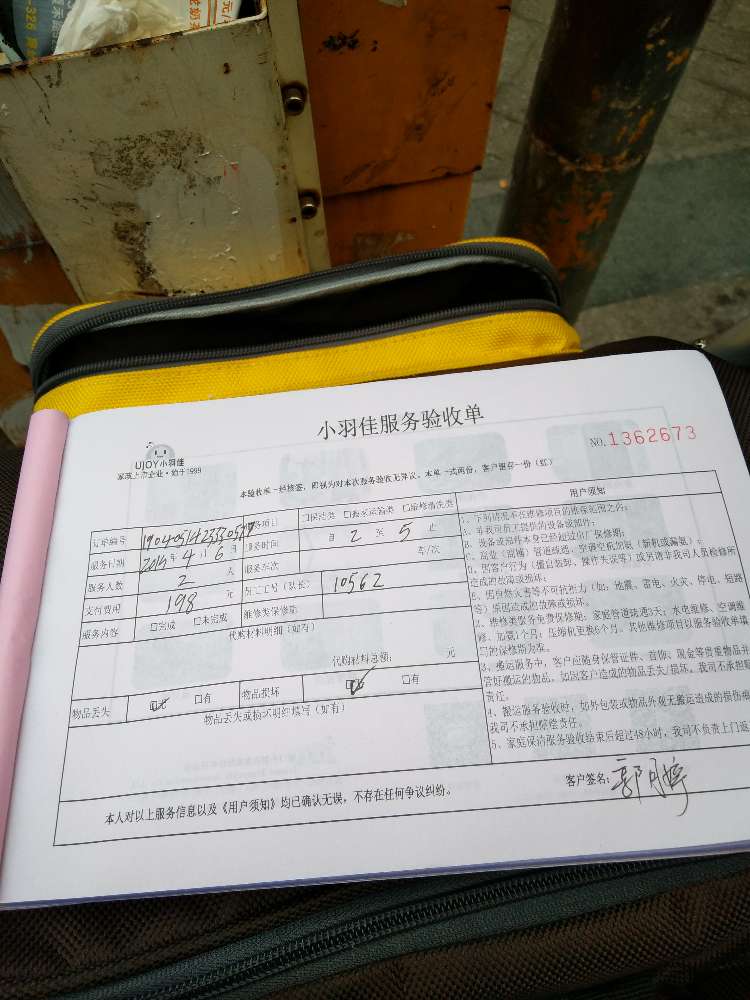 -326
元/
小羽佳服务验收单
NO.1362673
UJOY小羽佳
家政上市企业·始于1999
本验收单一经核签，即视为对本次服务验收无异议。本单一式两份，客户留存一份（红）
订单编号 服务项目 □保洁类 □搬家运输类 □维修清洗类 用户须知
服务日期 2019年4月6日 服务时间 自 2 至 5 止
服务人数 2 人 服务车次 车/次
支付费用 198 元 员工工号（队长） 10562
服务内容 □完成 □未完成 维修类保修期
代购材料明细（如有）
代购材料总额： 元
物品丢失 □无 □有 物品损坏 □无 □有
物品丢失或损坏明细填写（如有）
1、下列情形不在维修项目的维保范围之内：
A、非我司员工提供的设备或部件；
B、设备或部件本身已经超过出厂保修期；
D、因客户行为（擅自装卸、操作失误等）或另请非我司人员检修所
造成的故障或损坏；
E、因自然灾害等不可抗拒力（如：地震、雷电、火灾、停电、短路
等）原因造成的故障或损坏。
2、维修类服务免费保修期：家庭管道疏通3天；水电维修、空调维
修、加氟1个月；压缩机更换6个月。其他维修项目以服务验收单填
写的保修期为准。
3、搬运服务中，客户应随身保管证件、首饰、现金等贵重物品并
管好搬运的物品。如因客户造成的物品丢失/损坏，我司不承担
责任。
4、搬运服务验收时，如外包装或物品外观无搬运造成的损伤痕
我司不承担赔偿责任。
5、家庭保洁服务验收结束后超过48小时，我司不负责上门返
本人对以上服务信息以及《用户须知》均已确认无误，不存在任何争议纠纷。
客户签名：